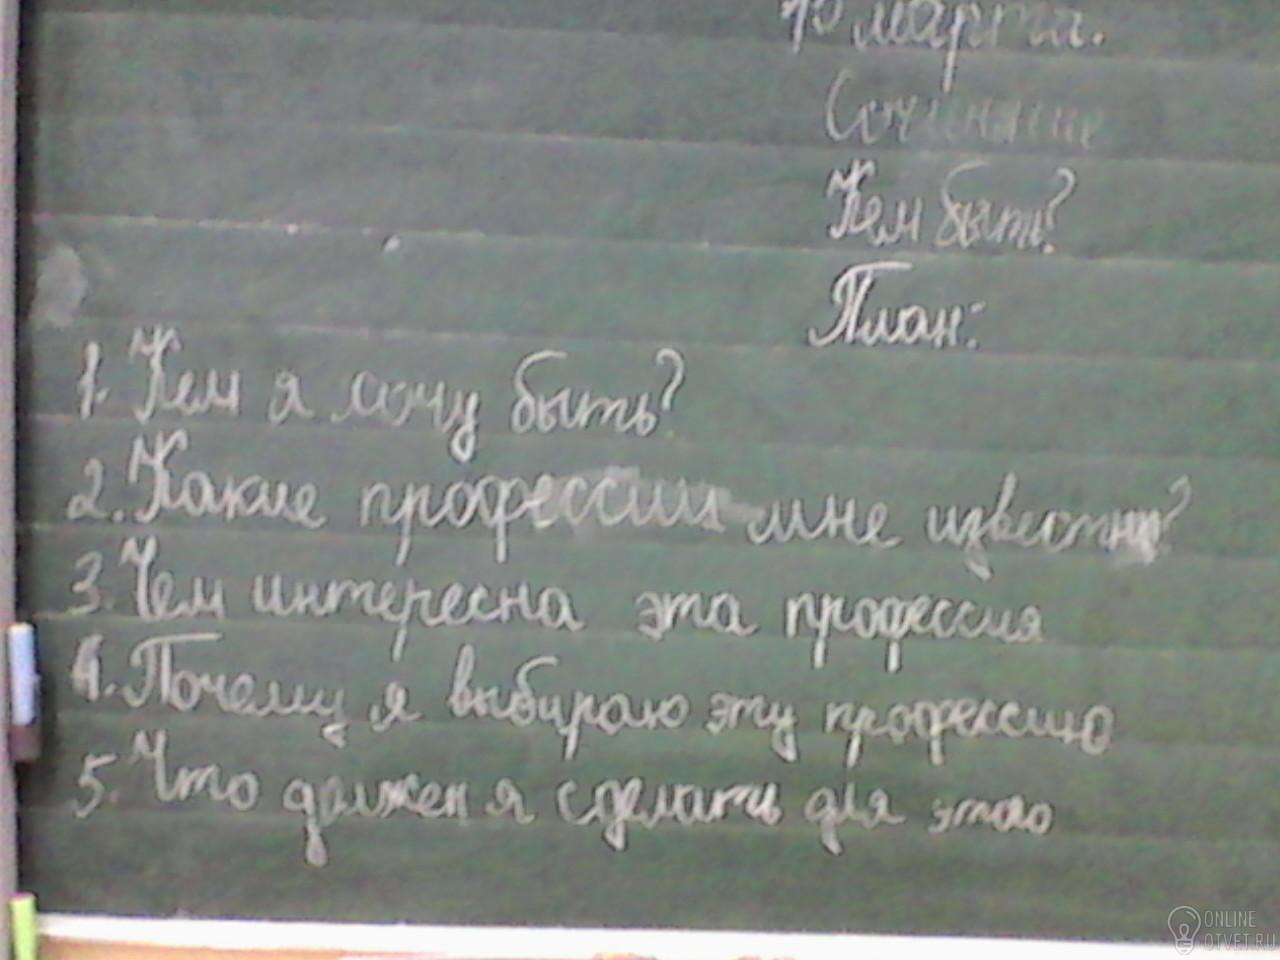 10 марта.
Сочинение
Кем быть?
План:
1. Кем я хочу быть?
2. Какие профессии мне известны?
3. Чем интересна эта профессия
4. Почему я выбираю эту профессию
5. Что должен я сделать для этого
ONLINE
OTVET.RU